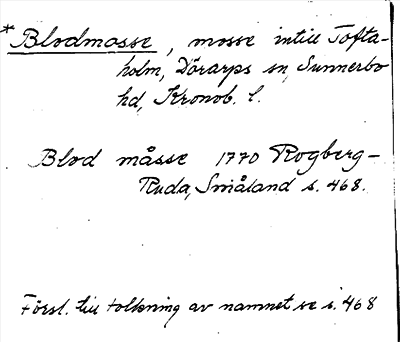 *Blodmosse, mosse intill Tofta-
holm, Dörarps sn, Sunnerbo
hd, Kronob. l.
Blod måsse 1770 Rogberg-
Ruda, Småland s. 468.
Försl. till tolkning av namnet se s. 468